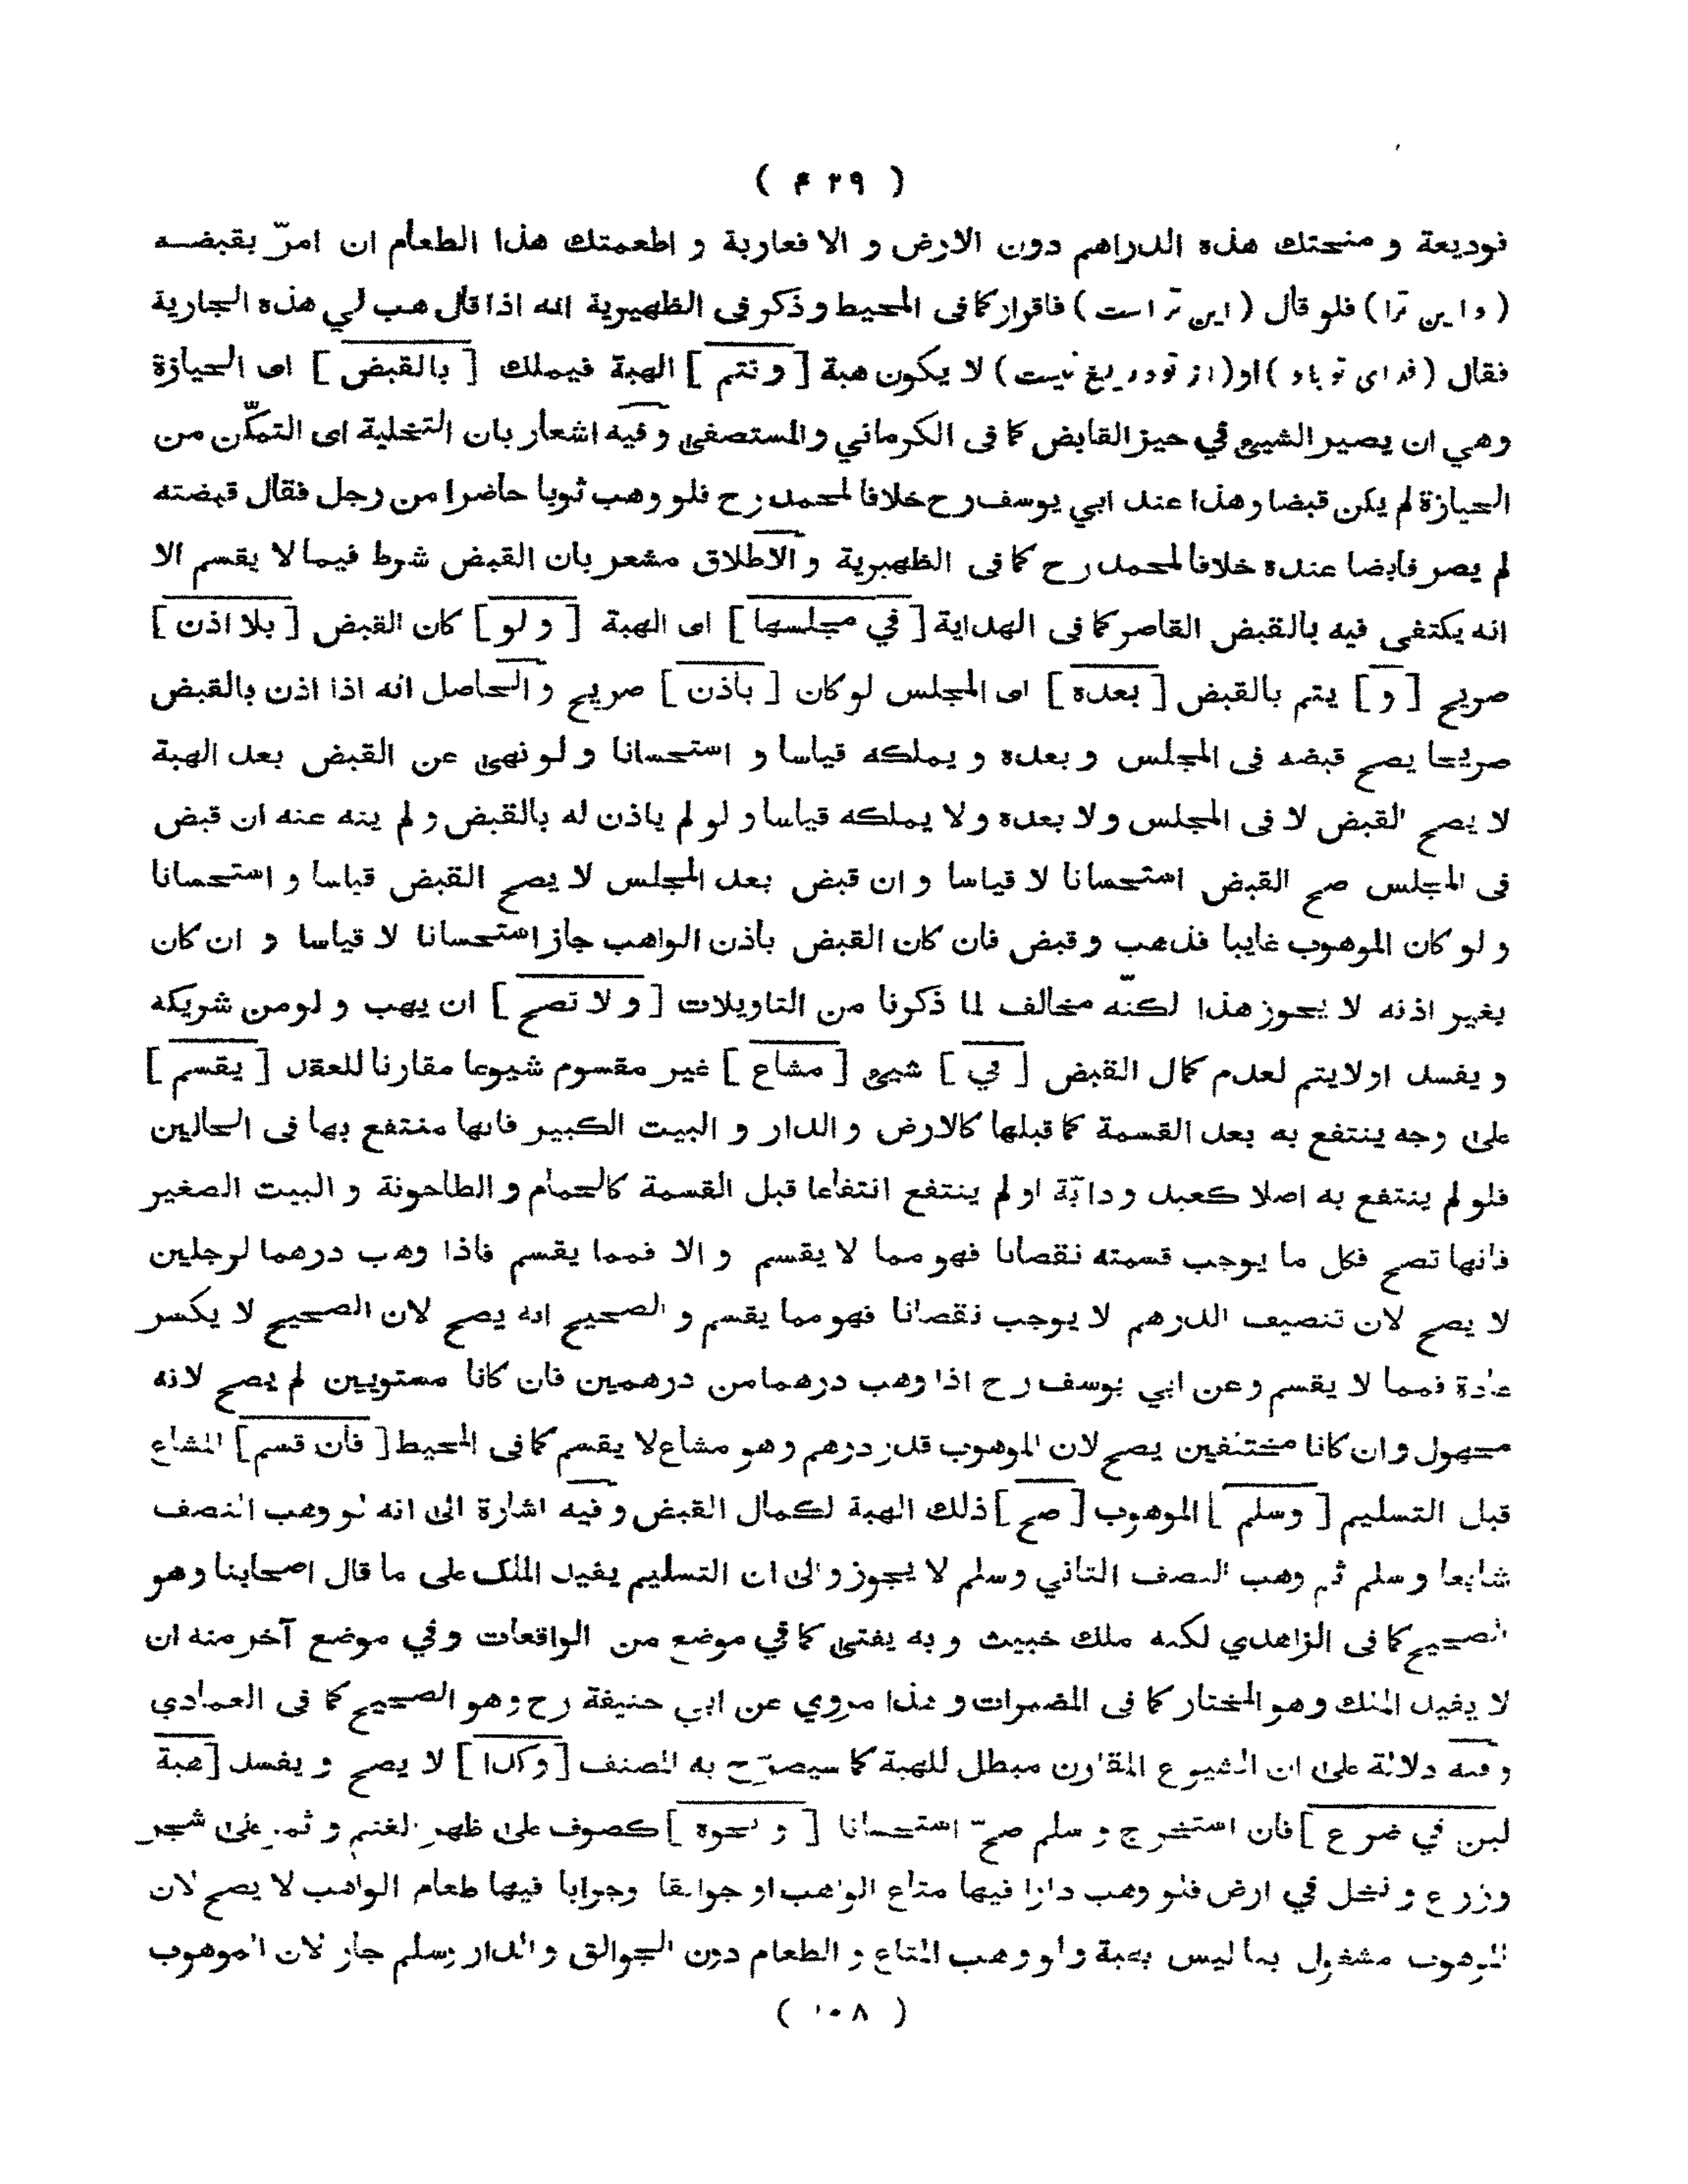 ( ۴۲۹ )
فوديعة و منحتك هذه الدراهم دون الارض و الا فعارية و اطعمتك هذا الطعام ان امرّ بقبضه
( و اين ترا ) فلو قال ( اين تر است ) فاقرار كما فى المحيط و ذكر فى الظهيرية انه اذا قال هب لي هذه الجارية
فقال ( فداى تو باد ) او ( از تو دريغ نيست ) لا يكون هبة [ و تتم ] الهبة فيملك [ بالقبض ] اى الحيازة
وهي ان يصير الشيئ في حيز القابض كما فى الكرماني والمستصفى و فيه اشعار بان التخلية اى التمكّن من
الحيازة لم يكن قبضا وهذا عند ابي يوسف رح خلافا لمحمد رح فلو وهب ثوبا حاضرا من رجل فقال قبضته
لم يصر قابضا عنده خلافا لمحمد رح كما فى الظهيرية و الاطلاق مشعر بان القبض شرط فيما لا يقسم الا
انه يكتفى فيه بالقبض القاصر كما فى الهداية [ في مجلسها ] اى الهبة [ و لو ] كان القبض [ بلا اذن ]
صريح [ و ] يتم بالقبض [ بعده ] اى المجلس لو كان [ باذن ] صريح و الحاصل انه اذا اذن بالقبض
صريحا يصح قبضه فى المجلس و بعده و يملكه قياسا و استحسانا و لو نهى عن القبض بعد الهبة
لا يصح القبض لا فى المجلس و لا بعده و لا يملكه قياسا و لو لم ياذن له بالقبض و لم ينه عنه ان قبض
فى المجلس صح القبض استحسانا لا قياسا و ان قبض بعد المجلس لا يصح القبض قياسا و استحسانا
و لو كان الموهوب غايبا فذهب و قبض فان كان القبض باذن الواهب جاز استحسانا لا قياسا و ان كان
بغير اذنه لا يجوز هذا لكنّه مخالف لما ذكرنا من التاويلات [ و لا تصح ] ان يهب و لو من شريكه
و يفسد او لايتم لعدم كمال القبض [ في ] شيئ [ مشاع ] غير مقسوم شيوعا مقارنا للعقد [ يقسم ]
على وجه ينتفع به بعد القسمة كما قبلها كالارض و الدار و البيت الكبير فانها منتفع بها فى الحالين
فلو لم ينتفع به اصلا كعبد و دابّة او لم ينتفع انتفاعا قبل القسمة كالحمام و الطاحونة و البيت الصغير
فانها تصح فكل ما يوجب قسمته نقصانا فهو مما لا يقسم و الا فمما يقسم فاذا وهب درهما لرجلين
لا يصح لان تنصيف الدرهم لا يوجب نقصانا فهو مما يقسم و الصحيح انه يصح لان الصحيح لا يكسر
عادة فمما لا يقسم و عن ابي يوسف رح اذا وهب درهما من درهمين فان كانا مستويين لم يصح لانه
مجهول و ان كانا مختلفين يصح لان الموهوب قدر درهم و هو مشاع لا يقسم كما فى المحيط [ فان قسم ] المشاع
قبل التسليم [ و سلم ] الموهوب [ صح ] ذلك الهبة لكمال القبض و فيه اشارة الى انه لو وهب النصف
شايعا و سلم ثم وهب النصف الثاني و سلم لا يجوز و الى ان التسليم يفيد الملك على ما قال اصحابنا و هو
الصحيح كما فى الزاهدي لكنه ملك خبيث و به يفتى كما في موضع من الواقعات و في موضع آخر منه ان
لا يفيد الملك و هو المختار كما فى المضمرات و هذا مروي عن ابي حنيفة رح و هو الصحيح كما فى العمادي
و فيه دلالة على ان الشيوع المقارن مبطل للهبة كما سيصرّح به المصنف [ و كذا ] لا يصح و يفسد [ هبة
لبن في ضرع ] فان استخرج و سلم صحّ استحسانا [ و نحوه ] كصوف على ظهر الغنم و ثمر على شجر
و زرع و نخل في ارض فلو وهب دارا فيها متاع الواهب او جوالقا و جرابا فيها طعام الواهب لا يصح لان
الموهوب مشغول بما ليس بهبة و لو وهب المتاع و الطعام دون الجوالق و الدار و سلم جاز لان الموهوب
( ١٠٨ )